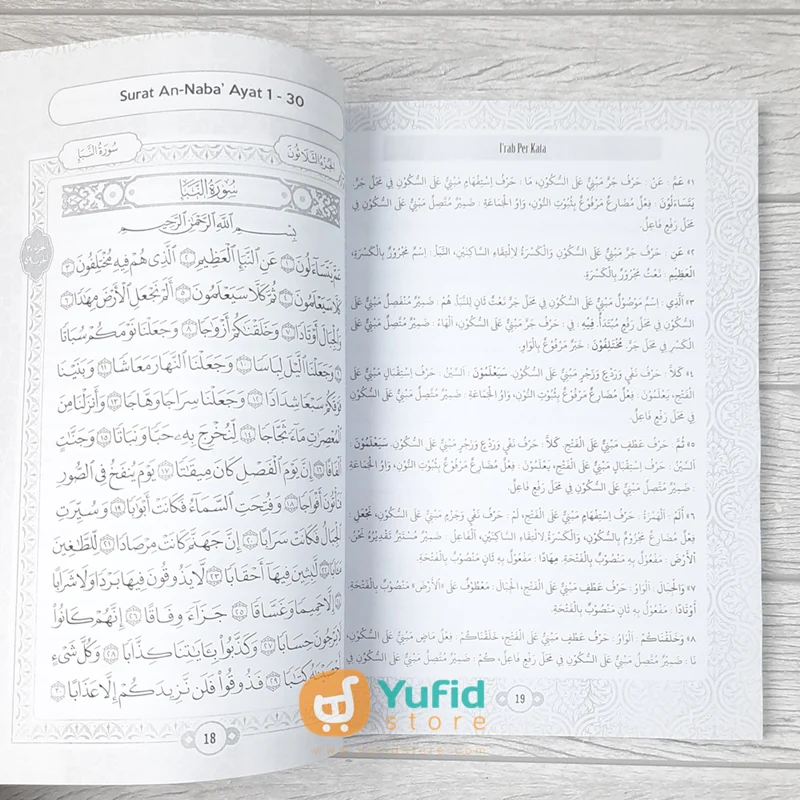 Surat An-Naba' Ayat 1 - 30
سُورَةُ النَّبَإِ
الجُزْءُ الثَّلَاثُونَ
سُورَةُ النَّبَإِ
بِسْمِ اللَّهِ الرَّحْمَٰنِ الرَّحِيمِ
عَمَّ يَتَسَاءَلُونَ ١ عَنِ النَّبَإِ الْعَظِيمِ ٢ الَّذِي هُمْ فِيهِ مُخْتَلِفُونَ ٣
كَلَّا سَيَعْلَمُونَ ٤ ثُمَّ كَلَّا سَيَعْلَمُونَ ٥ أَلَمْ نَجْعَلِ الْأَرْضَ مِهَٰدًا ٦
وَالْجِبَالَ أَوْتَادًا ٧ وَخَلَقْنَٰكُمْ أَزْوَٰجًا ٨ وَجَعَلْنَا نَوْمَكُمْ سُبَاتًا
٩ وَجَعَلْنَا الَّيْلَ لِبَاسًا ١٠ وَجَعَلْنَا النَّهَارَ مَعَاشًا ١١ وَبَنَيْنَا
فَوْقَكُمْ سَبْعًا شِدَادًا ١٢ وَجَعَلْنَا سِرَاجًا وَهَّاجًا ١٣ وَأَنزَلْنَا مِنَ
الْمُعْصِرَٰتِ مَاءً ثَجَّاجًا ١٤ لِّنُخْرِجَ بِهِ حَبًّا وَنَبَاتًا ١٥ وَجَنَّٰتٍ
أَلْفَافًا ١٦ إِنَّ يَوْمَ الْفَصْلِ كَانَ مِيقَٰتًا ١٧ يَوْمَ يُنفَخُ فِي الصُّورِ
فَتَأْتُونَ أَفْوَاجًا ١٨ وَفُتِحَتِ السَّمَاءُ فَكَانَتْ أَبْوَٰبًا ١٩ وَسُيِّرَتِ
الْجِبَالُ فَكَانَتْ سَرَابًا ٢٠ إِنَّ جَهَنَّمَ كَانَتْ مِرْصَادًا ٢١ لِّلطَّٰغِينَ
مَـَٔابًا ٢٢ لَّٰبِثِينَ فِيهَا أَحْقَابًا ٢٣ لَّا يَذُوقُونَ فِيهَا بَرْدًا وَلَا شَرَابًا
٢٤ إِلَّا حَمِيمًا وَغَسَّاقًا ٢٥ جَزَاءً وِفَاقًا ٢٦ إِنَّهُمْ كَانُوا
لَا يَرْجُونَ حِسَابًا ٢٧ وَكَذَّبُوا بِـَٔايَٰتِنَا كِذَّابًا ٢٨ وَكُلَّ شَيْءٍ
أَحْصَيْنَٰهُ كِتَٰبًا ٢٩ فَذُوقُوا فَلَن نَّزِيدَكُمْ إِلَّا عَذَابًا ٣٠
18
I'rab Per Kata
١» عَمَّ : عَنْ : حَرْفُ جَرٍّ مَبْنِيٌّ عَلَى السُّكُوْنِ، مَا : حَرْفُ اِسْتِفْهَامٍ مَبْنِيٌّ عَلَى السُّكُوْنِ فِي مَحَلِّ جَرٍّ.
يَتَسَاءَلُوْنَ : فِعْلٌ مُضَارِعٌ مَرْفُوْعٌ بِثُبُوْتِ النُّوْنِ، وَاوُ الْجَمَاعَةِ : ضَمِيْرٌ مُتَّصِلٌ مَبْنِيٌّ عَلَى السُّكُوْنِ فِي
مَحَلِّ رَفْعٍ فَاعِلٌ.
٢» عَنِ : حَرْفُ جَرٍّ مَبْنِيٌّ عَلَى السُّكُوْنِ وَالْكَسْرَةُ لِالْتِقَاءِ السَّاكِنَيْنِ، النَّبَإِ : اِسْمٌ مَجْرُوْرٌ بِالْكَسْرَةِ،
الْعَظِيْمِ : نَعْتٌ مَجْرُوْرٌ بِالْكَسْرَةِ.
٣» الَّذِي : اِسْمٌ مَوْصُوْلٌ مَبْنِيٌّ عَلَى السُّكُوْنِ فِي مَحَلِّ جَرٍّ نَعْتٌ ثَانٍ لِلنَّبَإِ. هُمْ : ضَمِيْرٌ مُنْفَصِلٌ مَبْنِيٌّ عَلَى
السُّكُوْنِ فِي مَحَلِّ رَفْعٍ مُبْتَدَأٌ. فِيْهِ : فِي : حَرْفُ جَرٍّ مَبْنِيٌّ عَلَى السُّكُوْنِ، الْهَاءُ : ضَمِيْرٌ مُتَّصِلٌ مَبْنِيٌّ عَلَى
الْكَسْرِ فِي مَحَلِّ جَرٍّ. مُخْتَلِفُوْنَ : خَبَرٌ مَرْفُوْعٌ بِالْوَاوِ.
٤» كَلَّا : حَرْفُ نَفْيٍ وَرَدْعٍ وَزَجْرٍ مَبْنِيٌّ عَلَى السُّكُوْنِ. سَيَعْلَمُوْنَ : السِّيْنُ : حَرْفُ اِسْتِقْبَالٍ مَبْنِيٌّ عَلَى
الْفَتْحِ، يَعْلَمُوْنَ : فِعْلٌ مُضَارِعٌ مَرْفُوْعٌ بِثُبُوْتِ النُّوْنِ، وَاوُ الْجَمَاعَةِ : ضَمِيْرٌ مُتَّصِلٌ مَبْنِيٌّ عَلَى السُّكُوْنِ
فِي مَحَلِّ رَفْعٍ فَاعِلٌ.
٥» ثُمَّ : حَرْفُ عَطْفٍ مَبْنِيٌّ عَلَى الْفَتْحِ. كَلَّا : حَرْفُ نَفْيٍ وَرَدْعٍ وَزَجْرٍ مَبْنِيٌّ عَلَى السُّكُوْنِ. سَيَعْلَمُوْنَ :
السِّيْنُ : حَرْفُ اِسْتِقْبَالٍ مَبْنِيٌّ عَلَى الْفَتْحِ، يَعْلَمُوْنَ : فِعْلٌ مُضَارِعٌ مَرْفُوْعٌ بِثُبُوْتِ النُّوْنِ، وَاوُ الْجَمَاعَةِ :
ضَمِيْرٌ مُتَّصِلٌ مَبْنِيٌّ عَلَى السُّكُوْنِ فِي مَحَلِّ رَفْعٍ فَاعِلٌ.
٦» أَلَمْ : الْهَمْزَةُ : حَرْفُ اِسْتِفْهَامٍ مَبْنِيٌّ عَلَى الْفَتْحِ، لَمْ : حَرْفُ نَفْيٍ وَجَزْمٍ مَبْنِيٌّ عَلَى السُّكُوْنِ، نَجْعَلِ :
فِعْلٌ مُضَارِعٌ مَجْزُوْمٌ بِالسُّكُوْنِ، وَالْكَسْرَةُ لِالْتِقَاءِ السَّاكِنَيْنِ، الْفَاعِلُ : ضَمِيْرٌ مُسْتَتِرٌ تَقْدِيْرُهُ نَحْنُ.
الْأَرْضَ : مَفْعُوْلٌ بِهِ مَنْصُوْبٌ بِالْفَتْحَةِ. مِهَادًا : مَفْعُوْلٌ بِهِ ثَانٍ مَنْصُوْبٌ بِالْفَتْحَةِ.
٧» وَالْجِبَالَ : الْوَاوُ : حَرْفُ عَطْفٍ مَبْنِيٌّ عَلَى الْفَتْحِ، الْجِبَالَ : مَعْطُوْفٌ عَلَى «الْأَرْضَ» مَنْصُوْبٌ بِالْفَتْحَةِ.
أَوْتَادًا : مَفْعُوْلٌ بِهِ ثَانٍ مَنْصُوْبٌ بِالْفَتْحَةِ.
٨» وَخَلَقْنَاكُمْ : الْوَاوُ : حَرْفُ عَطْفٍ مَبْنِيٌّ عَلَى الْفَتْحِ، خَلَقْنَاكُمْ : فِعْلٌ مَاضٍ مَبْنِيٌّ عَلَى السُّكُوْنِ،
نَا : ضَمِيْرٌ مُتَّصِلٌ مَبْنِيٌّ عَلَى السُّكُوْنِ فِي مَحَلِّ رَفْعٍ فَاعِلٌ، كُمْ : ضَمِيْرٌ مُتَّصِلٌ مَبْنِيٌّ عَلَى السُّكُوْنِ فِي
19
Yufid
store